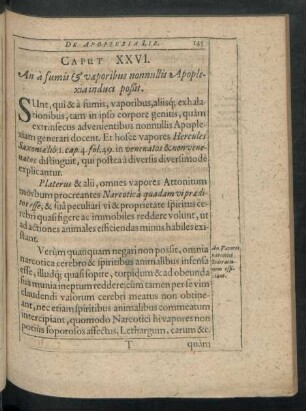 DE APOPLEXIA LIB. 145
CAPUT XXVI.
An à fumis & vaporibus nonnullis Apople-
xia induci possit.
SUnt, qui & à fumis, vaporibus, aliisq; exhala-
tionibus, tam in ipso corpore genitis, quàm
extrinsecus advenientibus nonnullis Apople-
xiam generari docent. Et hosce vapores Hercules
Saxonia lib. 1. cap. 4. fol. 49. in venenatos & non vene-
natos distinguit, qui postea à diversis diversimodè
explicantur.
Platerus & alii, omnes vapores Attonitum
morbum procreantes Narcoticâ quadam vi prædi-
tos esse, & suâ peculiari vi & proprietate spiritus cere-
bri quasi figere ac immobiles reddere volunt, ut
ad actiones animales efficiendas minus habiles exi-
stant.
Verùm quanquam negari non possit, omnia
narcotica cerebro & spiritibus animalibus infensa
esse, illudq; quasi sopire, torpidum & ad obeunda
sua munia ineptum reddere: cùm tamen per se vim
claudendi vasorum cerebri meatus non obtine-
ant, nec etiam spiritibus animalibus commeatum
intercipiant, quomodo Narcotici hi vapores non
potiùs soporosos affectus, Lethargum, carum &c.
T quàm
An Vapores
narcotici